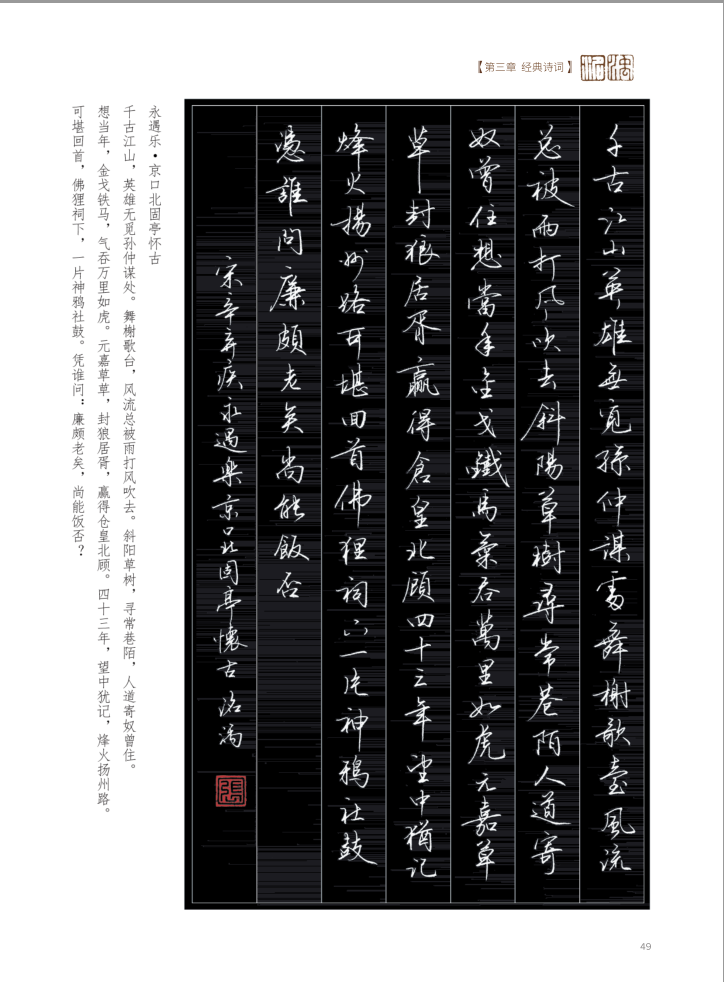 【第三章 经典诗词】
千古江山英雄无觅孫仲謀處舞榭歌臺風流
总被雨打风吹去斜陽草樹尋常巷陌人道寄
奴曾住想當年金戈鐵馬氣吞萬里如虎元嘉草
草封狼居胥贏得倉皇北顧四十三年望中猶记
烽火揚州路可堪回首佛狸祠下一片神鴉社鼓
憑誰问廉頗老矣尚能飯否
宋辛弃疾永遇樂京口北固亭懷古洛满
張
永遇乐·京口北固亭怀古
千古江山，英雄无觅孙仲谋处。舞榭歌台，风流总被雨打风吹去。斜阳草树，寻常巷陌，人道寄奴曾住。
想当年，金戈铁马，气吞万里如虎。元嘉草草，封狼居胥，赢得仓皇北顾。四十三年，望中犹记，烽火扬州路。
可堪回首，佛狸祠下，一片神鸦社鼓。凭谁问：廉颇老矣，尚能饭否？
49